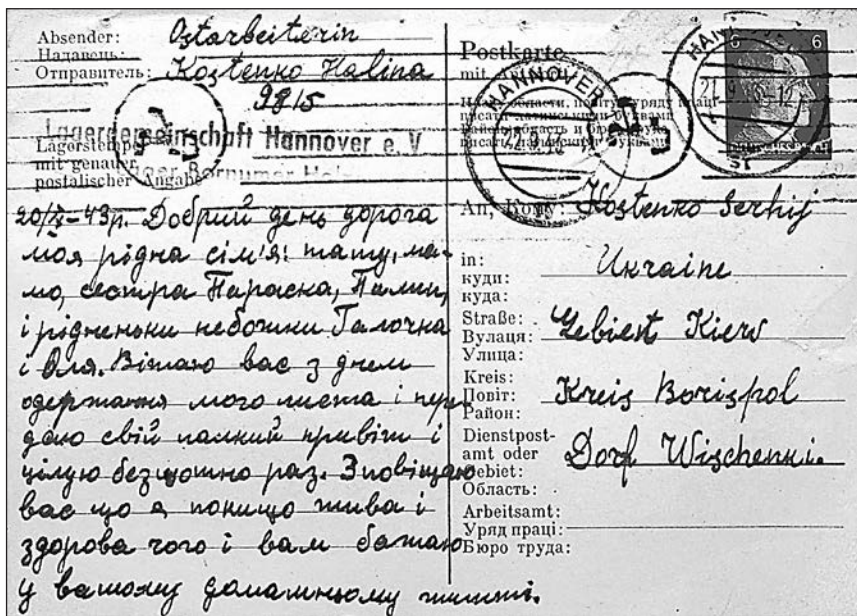 Absender: Ostarbeiterin
Надавець:
Отправитель: Kostenko Halina
9815
Lagergemeinschaft Hannover e. V
Lager Bornumer
Lagerstempel
mit genauer
postalischer Angabe
20/IX-43р. Добрий день дорога
моя рідна сім'я: тату, ма-
мо, сестра Параска,
і рідненьки небожки Галочка
і Оля. Вітаю вас з днем
одержання мого листа і пере
даю свій палкий привіт і
цілую безщотно раз. Зповіщаю
вас що я покищо жива і
здорова чого і вам бажаю
у вашому домашньому житті.
Postkarte
mit
области, повіту, уряду праці
писати латинськими буквами
область и
писать латинскими буквами
HANNOVER
6 6
An, Кому: Kostenko Serhij
in:
куди:
куда:
Ukraine
Straße:
Вулиця:
Улица:
Gebiet Kiew
Kreis:
Повіт:
Район:
Kreis Borispol
Dienstpost-
amt oder
Gebiet:
Область:
Dorf Wischenki.
Arbeitsamt:
Уряд праці:
Бюро труда: